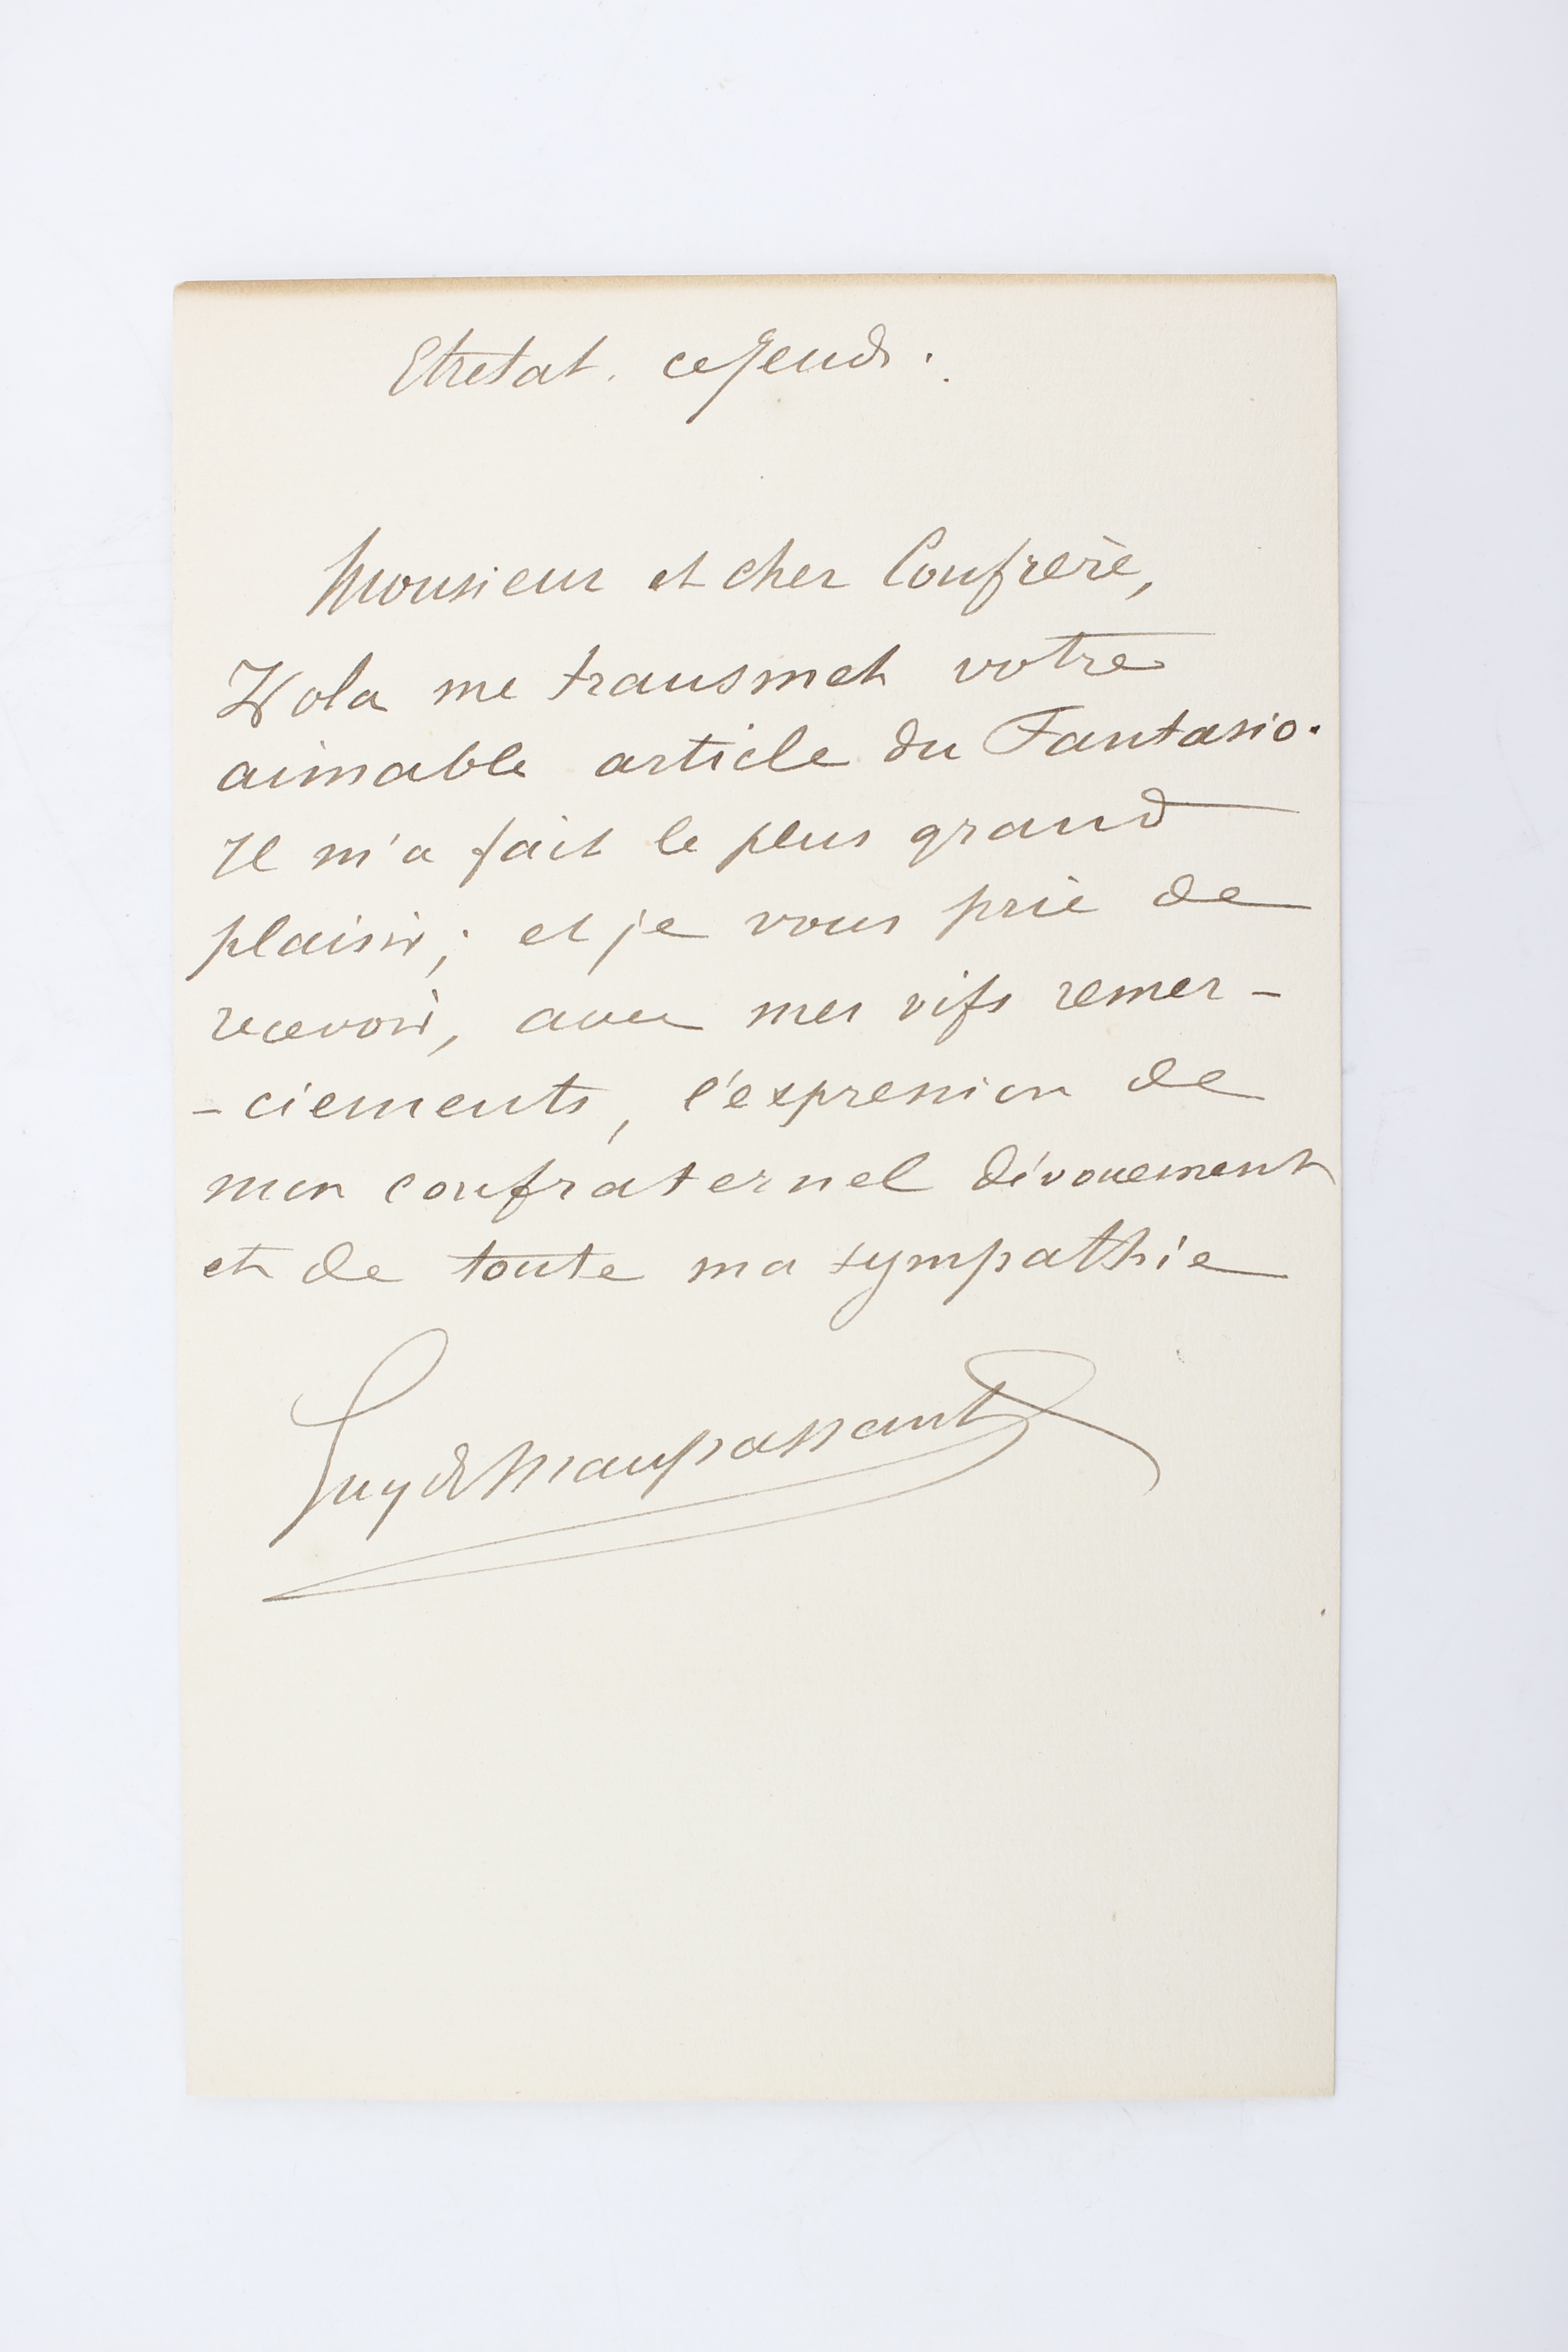 Etretat. ce Jeudi.
Monsieur et cher Confrère,
Zola me transmet votre
aimable article du Fantasio.
Il m'a fait le plus grand
plaisir; et je vous prie de
recevoir, avec mes vifs remer-
-ciements, l'expression de
mon confraternel dévouement
et de toute ma sympathie
Guy de Maupassant